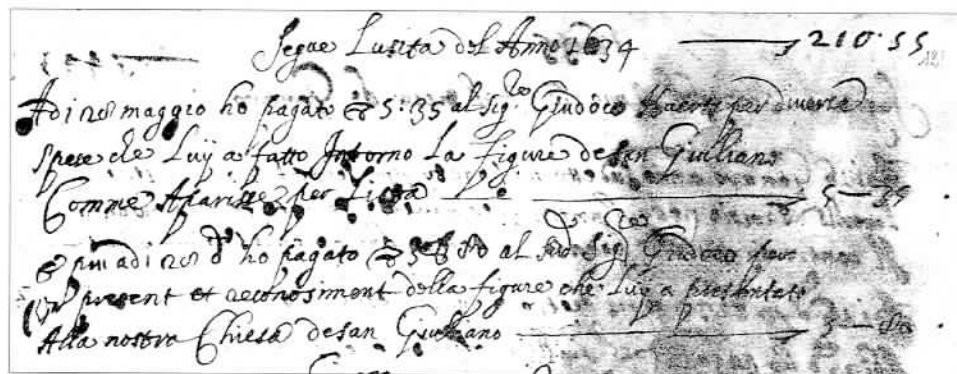 Segue Lusita del Anno 1634 210·55
Adi 28 maggio ho pagato 5:35 al Sig.re Giudoco Haerts per diverse
spese che Luÿ a fatto Intorno La figure de san Giulliano
Comme Aparisse per 5—
E piu adi 28 do ho pagato al Sig.re Giudoco per
present et reconosiment della figure che Luÿ a presentato
Alla nostra Chiesa de san Giulliano